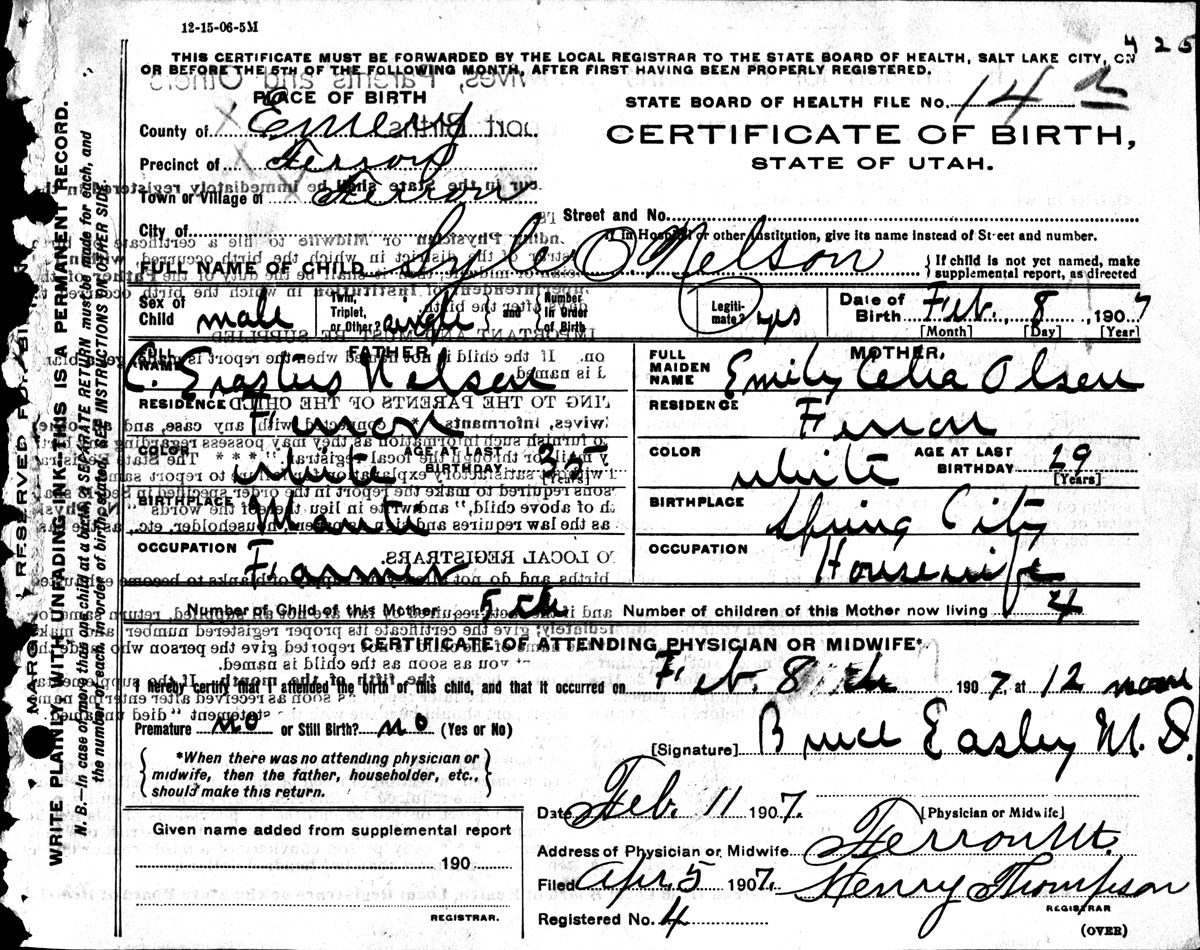 12-15-06-5M
425
THIS CERTIFICATE MUST BE FORWARDED BY THE LOCAL REGISTRAR TO THE STATE BOARD OF HEALTH, SALT LAKE CITY, ON
OR BEFORE THE 5TH OF THE FOLLOWING MONTH, AFTER FIRST HAVING BEEN PROPERLY REGISTERED.
PLACE OF BIRTH
County of Emery
Precinct of Ferron
Town or Village of Ferron
City of
STATE BOARD OF HEALTH FILE No. 14
CERTIFICATE OF BIRTH,
STATE OF UTAH.
Street and No.
If in Hospital or other Institution, give its name instead of Street and number.
FULL NAME OF CHILD Lyle O Nelson
If child is not yet named, make supplemental report, as directed
Sex of Child male
Twin, Triplet, or Other? single and Number in Order of Birth
Legitimate? yes
Date of Birth Feb. 8 1907
[Month] [Day] [Year]
FATHER.
FULL NAME C. Erastus Nelson
RESIDENCE Ferron
COLOR white AGE AT LAST BIRTHDAY 35 [Years]
BIRTHPLACE Manti
OCCUPATION Farmer
MOTHER.
FULL MAIDEN NAME Emily Celia Olsen
RESIDENCE Ferron
COLOR white AGE AT LAST BIRTHDAY 29 [Years]
BIRTHPLACE Spring City
OCCUPATION Housewife
Number of Child of this Mother 5th Number of children of this Mother now living 4
CERTIFICATE OF ATTENDING PHYSICIAN OR MIDWIFE*
I hereby certify that I attended the birth of this child, and that it occurred on Feb. 8th 1907, at 12 noon
Premature no or Still Birth? no (Yes or No)
[Signature] Bruce Easley M.D.
*When there was no attending physician or
midwife, then the father, householder, etc.,
should make this return.
Date Feb. 11 1907.
[Physician or Midwife]
Given name added from supplemental report
190
REGISTRAR.
Address of Physician or Midwife Ferron Ut.
Filed Apr. 5 1907. Henry Thompson
REGISTRAR
Registered No. 4
(OVER)
MARGIN RESERVED FOR BINDING
WRITE PLAINLY WITH UNFADING INK—THIS IS A PERMANENT RECORD.
N. B.—In case of more than one child at a birth, a SEPARATE RETURN must be made for each, and
the number of each, in order of birth, stated. SEE INSTRUCTIONS ON OTHER SIDE.